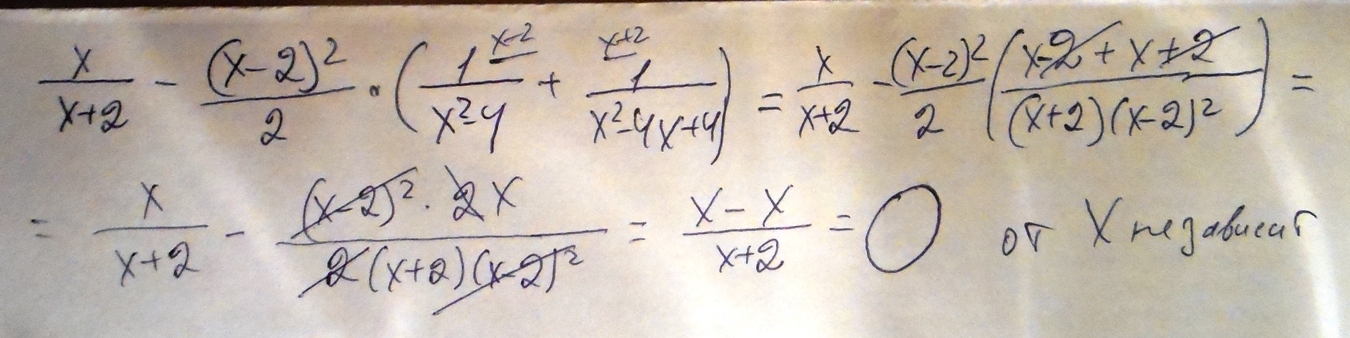 x/(x+2) - (x-2)²/2 · (1/(x²-4) + 1/(x²-4x+4)) = x/(x+2) - (x-2)²/2 ((x-2+x+2)/((x+2)(x-2)²)) =
= x/(x+2) - ((x-2)²·2x)/(2(x+2)(x-2)²) = (x-x)/(x+2) = 0 от X независит